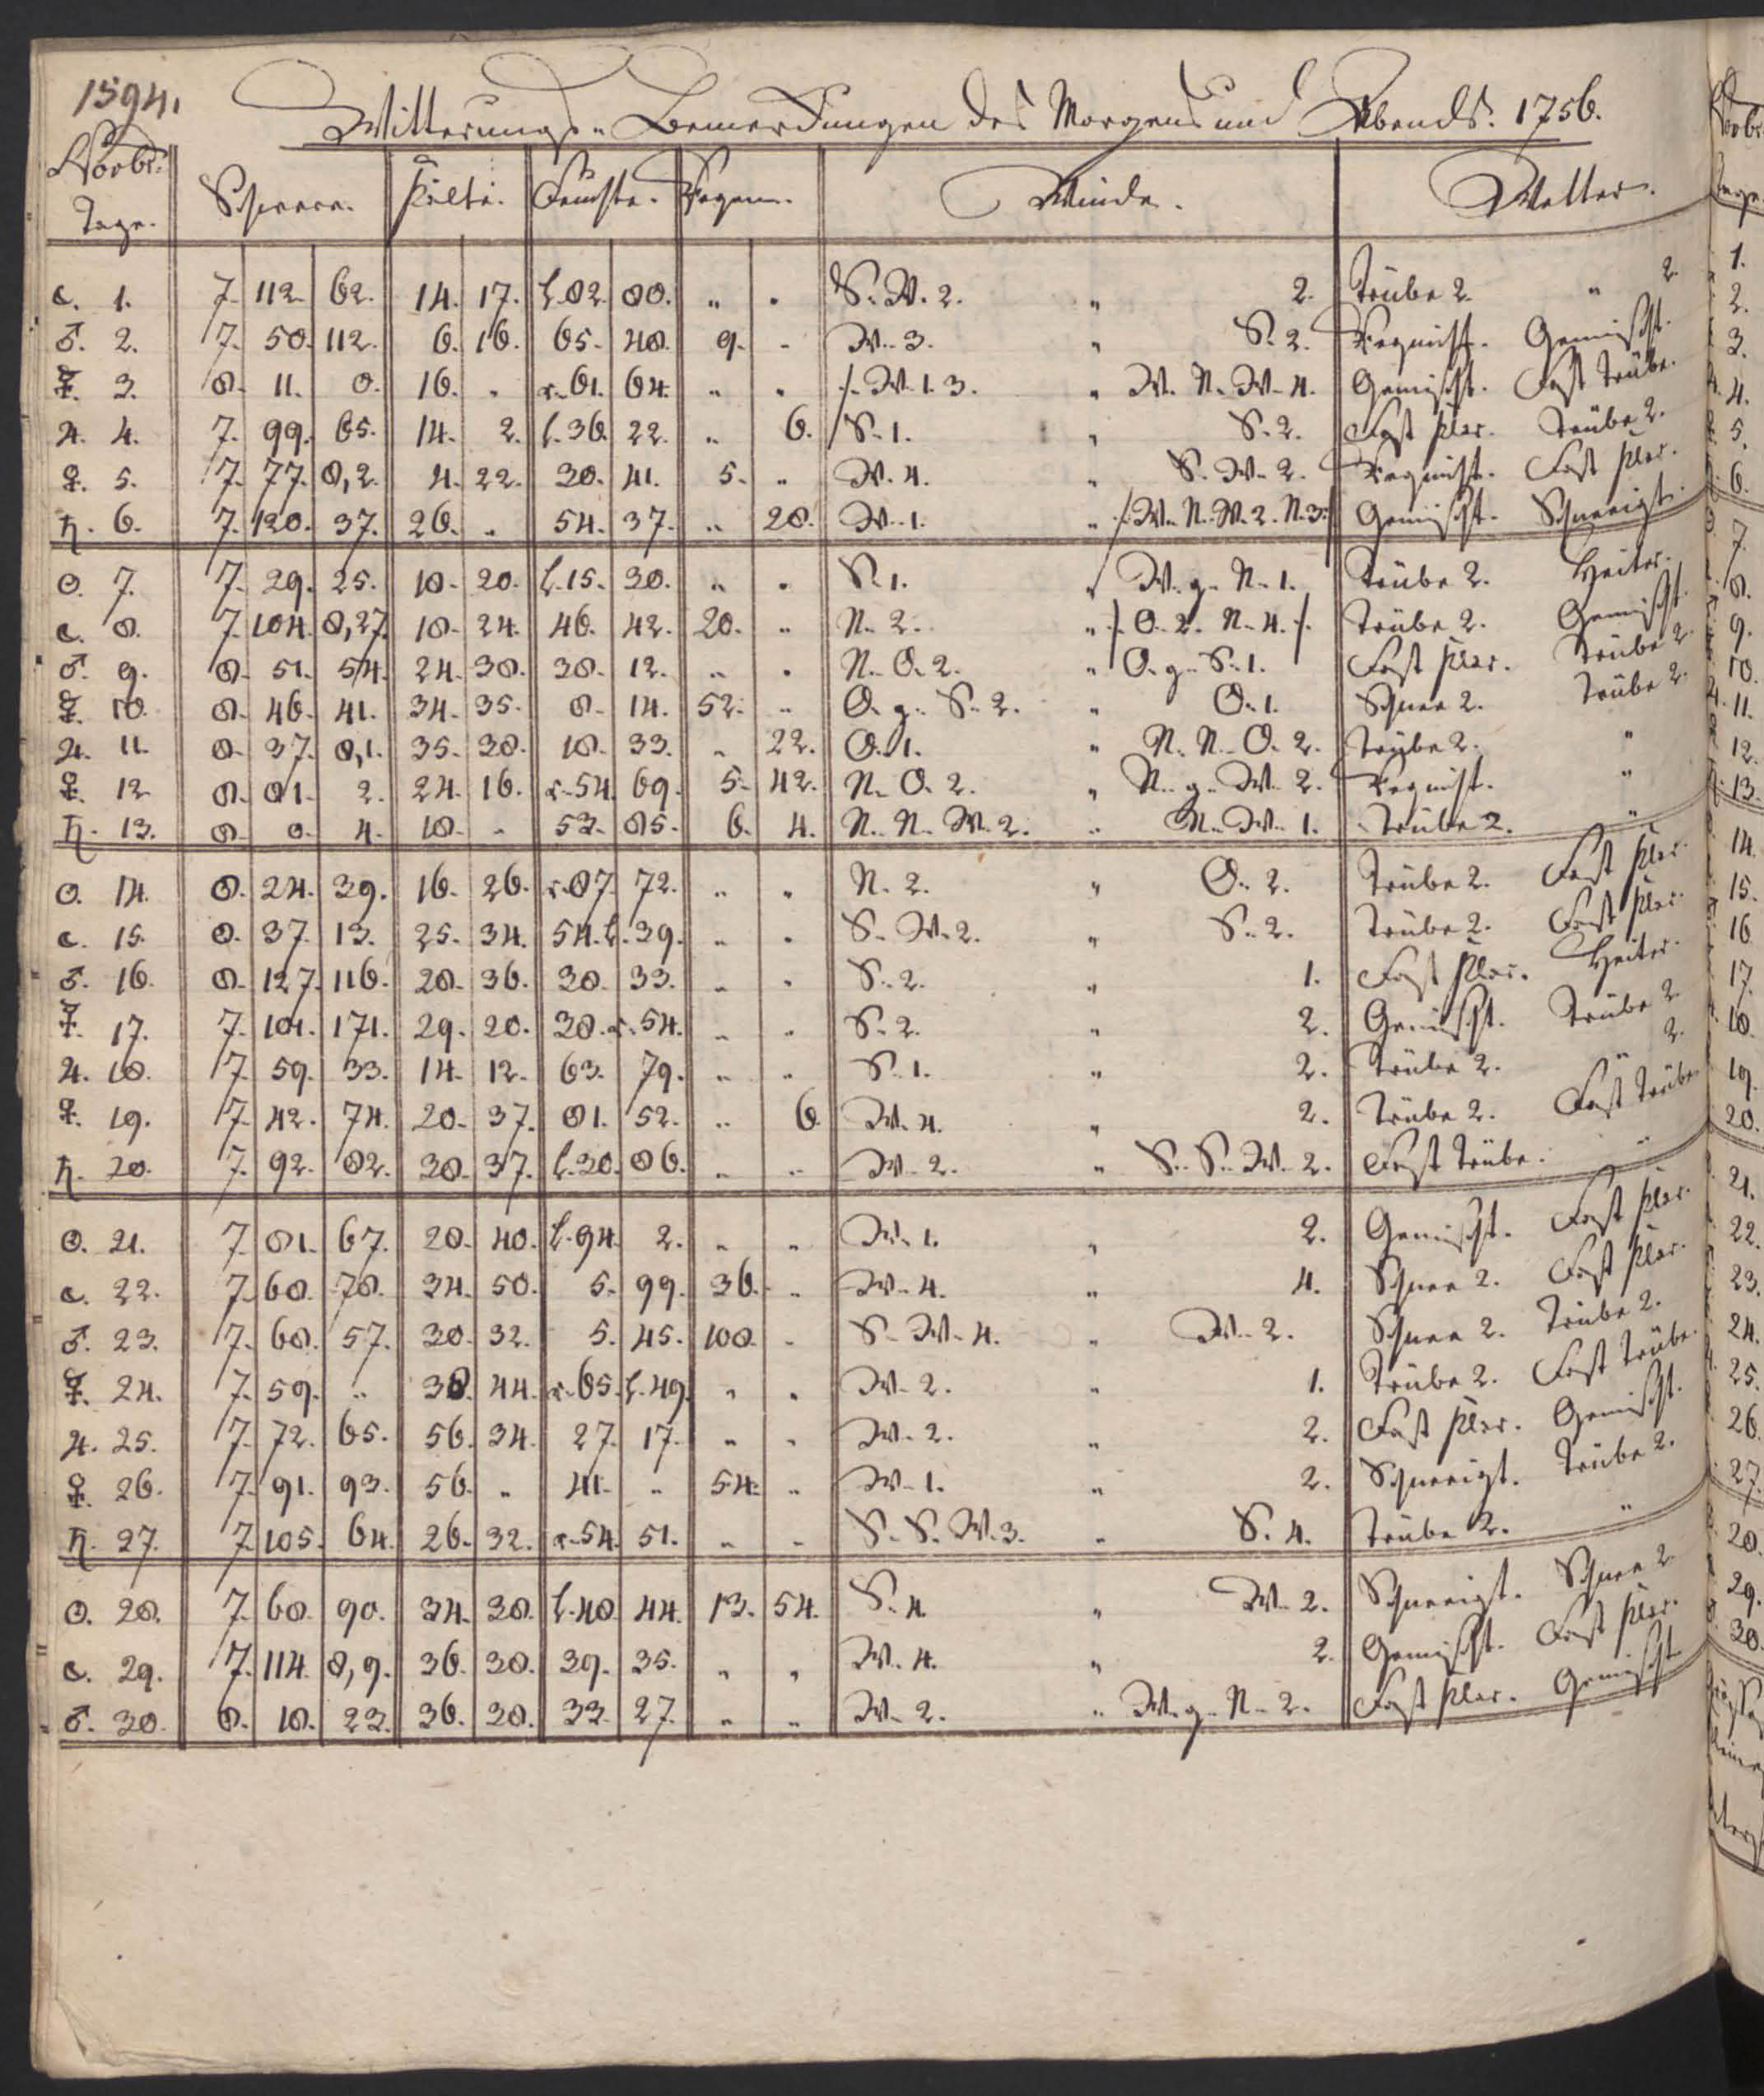 1594.
Witterungs-Bemerckungen des Morgens und Abends. 1756.
Novbr. Tage. Schwere. Kälte. Feuchte. Regen. Winde. Wetter.
☾. 1. 7. 112. 62. 14. 17. l. 82. 80. „ „ S. W. 2. „ 2. Trübe 2. „ 2.
♂. 2. 7. 50. 112. 6. 16. 65. 48. 9. „ W. 3. „ S. 2. Regnicht. Gemischt.
☿. 3. 8. 11. 0. 16. „ r. 61. 64. „ „ /. W. 1. 3. „ W. N. W. 4. Gemischt. Fast Trübe.
♃. 4. 7. 99. 65. 14. 2. l. 36. 22. „ 6. S. 1. „ S. 2. Fast klar. Trübe 2.
♀. 5. 7. 77. 8,2. 4. 22. 30. 41. 5. „ W. 4. „ S. W. 2. Regnicht. Fast klar.
♄. 6. 7. 120. 37. 26. „ 54. 37. „ 28. W. 1. „ /. W. N. W. 2. N. 3. Gemischt. Schneeigt.
☉. 7. 7. 29. 25. 18. 20. l. 15. 30. „ „ S. 1. „ W. g. N. 1. Trübe 2. Heiter.
☾. 8. 7. 104. 8,27. 18. 24. 46. 42. 20. „ N. 2. „ /. O. 2. N. 4. /. Trübe 2. Gemischt.
♂. 9. 8. 51. 54. 24. 38. 38. 12. „ „ N. O. 2. „ O. g. S. 1. Fast klar. Trübe 2.
☿. 10. 8. 46. 41. 34. 35. 8. 14. 52. „ O. g. S. 2. „ O. 1. Schnee 2. Trübe 2.
♃. 11. 8. 37. 8,1. 35. 38. 18. 33. „ 22. O. 1. „ N. N. O. 2. Trübe 2. „
♀. 12. 8. 81. 2. 24. 16. r. 54. 69. 5. 42. N. O. 2. „ N. g. W. 2. Regnicht. „
♄. 13. 8. 0. 4. 18. „ 53. 85. 6. 4. N. N. W. 2. „ N. W. 1. Trübe 2. „
☉. 14. 8. 24. 39. 16. 26. r. 87. 72. „ „ N. 2. „ O. 2. Trübe 2. Fast klar.
☾. 15. 8. 37. 13. 25. 34. 54. l. 39. „ „ S. W. 2. „ S. 2. Trübe 2. Fast klar.
♂. 16. 8. 127. 116. 28. 36. 38. 33. „ „ S. 2. „ 1. Fast klar. Heiter.
☿. 17. 7. 101. 171. 29. 20. 38. r. 54. „ „ S. 2. „ 2. Gemischt. Trübe 2.
♃. 18. 7. 59. 33. 14. 12. 63. 79. „ „ S. 1. „ 2. Trübe 2. „ 2.
♀. 19. 7. 42. 74. 20. 37. 81. 52. „ 6. W. 4. „ 2. Trübe 2. Fast Trübe.
♄. 20. 7. 92. 82. 38. 37. l. 30. 86. „ „ W. 2. „ S. S. W. 2. Fast Trübe. „
☉. 21. 7. 81. 67. 28. 40. l. 94. 2. „ „ W. 1. „ 2. Gemischt. Fast klar.
☾. 22. 7. 68. 78. 34. 50. 5. 99. 36. „ W. 4. „ 4. Schnee 2. Fast klar.
♂. 23. 7. 68. 57. 30. 32. 5. 45. 108. „ S. W. 4. „ W. 2. Schnee 2. Trübe 2.
☿. 24. 7. 59. „ 38. 44. r. 65. l. 49. „ „ W. 2. „ 1. Trübe 2. Fast Trübe.
♃. 25. 7. 72. 65. 56. 34. 27. 17. „ „ W. 2. „ 2. Fast klar. Gemischt.
♀. 26. 7. 91. 93. 56. „ 41. „ 54. „ W. 1. „ 2. Schneeigt. Trübe 2.
♄. 27. 7. 105. 64. 26. 32. r. 54. 51. „ „ S. S. W. 3. „ S. 4. Trübe 2. „
☉. 28. 7. 68. 90. 34. 38. l. 48. 44. 13. 54. S. 4. „ W. 2. Schneeigt. Schnee 2.
☾. 29. 7. 114. 8,9. 36. 38. 39. 35. „ „ W. 4. „ 2. Gemischt. Fast klar.
♂. 30. 8. 18. 23. 36. 38. 33. 27. „ „ W. 2. „ W. g. N. 2. Fast klar. Gemischt.